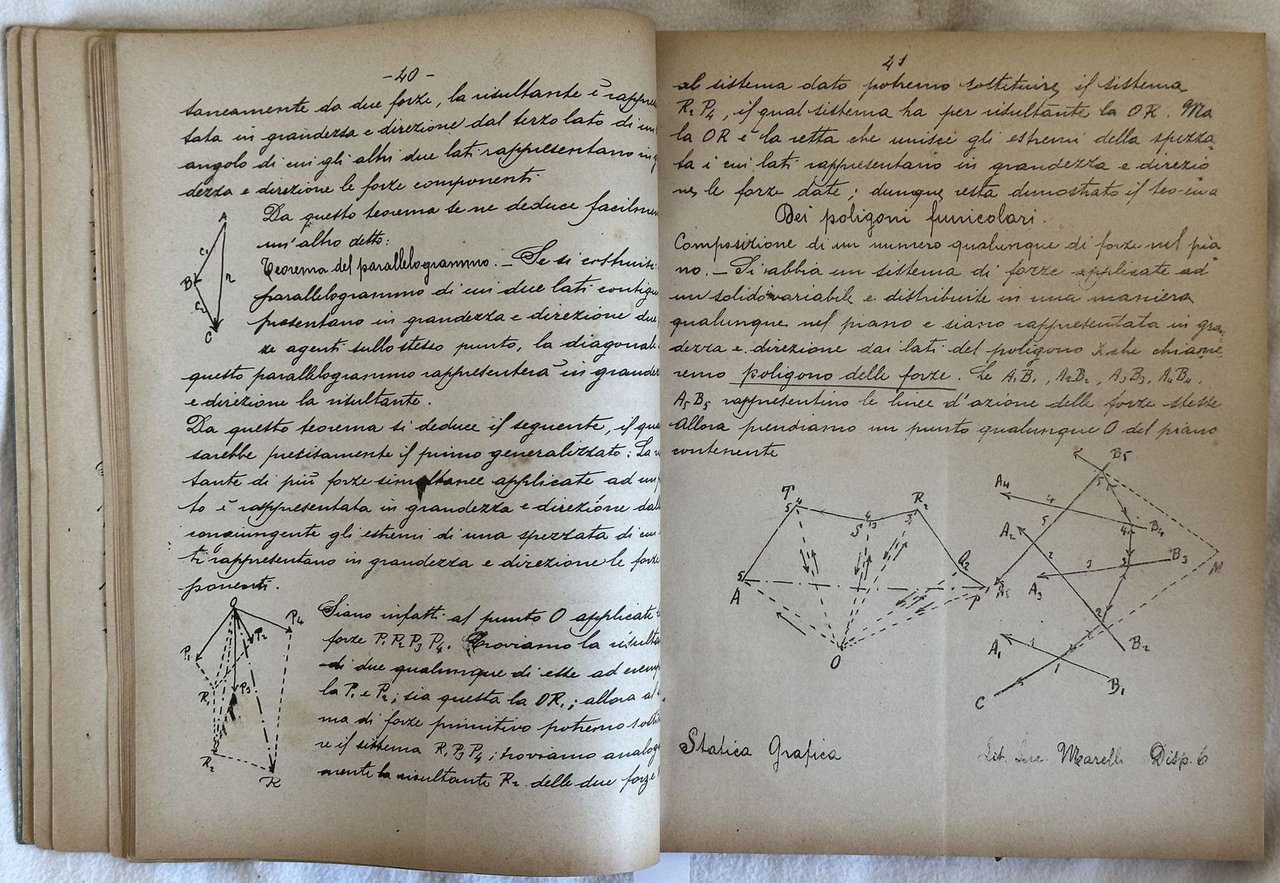 -40-
taneamente da due forze, la risultante è rappre
tata in grandezza e direzione dal terzo lato di un
angolo di cui gli altri due lati rappresentano in g
dezza e direzione le forze componenti.
Da questo teorema se ne deduce facilmen
un'altro detto:
Teorema del parallelogrammo. _ Se si costruisc
parallelogrammo di cui due lati contigu
presentano in grandezza e direzione due
ze agenti sullo stesso punto, la diagonale
questo parallelogrammo rappresenterà in grandez
e direzione la risultante.
Da questo teorema si deduce il seguente, il qua
sarebbe precisamente il primo generalizzato: La
tante di più forze simultanee applicate ad un p
to è rappresentata in grandezza e direzione dal
congiungente gli estremi di una spezzata di cui
ti rappresentano in grandezza e direzione le forze
ponenti.
Siano infatti al punto O applicate
forze P1 P2 P3 P4. Troviamo la risulta
di due qualunque di esse ad esemp
la P1 e P2; sia questa la OR1; allora al
ma di forze primitivo potremo sosti
re il sistema R1 P3 P4; troviamo analog
mente la risultante R2 delle due forze
A
c1
B
r
c2
C
O
P4
P2
P1
R1
P3
R2
R
41
al sistema dato potremo sostituire il sistema
R2 P4, il qual sistema ha per risultante la OR. Ma
la OR è la retta che unisce gli estremi della spezza
ta i cui lati rappresentano in grandezza e direzio
ne le forze date; dunque resta dimostrato il teorema
Dei poligoni funicolari.
Composizione di un numero qualunque di forze nel pia
no. _ Si abbia un sistema di forze applicate ad
un solido variabile e distribuite in una maniera
qualunque nel piano e siano rappresentata in gran
dezza e direzione dai lati del poligono che chiame
remo poligono delle forze. Le A1B1, A2B2, A3B3, A4B4,
A5B5 rappresentino le linee d'azione delle forze stesse
Allora prendiamo un punto qualunque O del piano
contenente
T
5 4
S
4 3
R
3 2
Q 2
5
A
P 1
O
B5
A4
4
5
5
B4
4
A2
2
B3
3
3
A3
M
A5
2
B2
A1
1
1
B1
C
Statica Grafica
Lit. Luc. Marelli Disp. 6